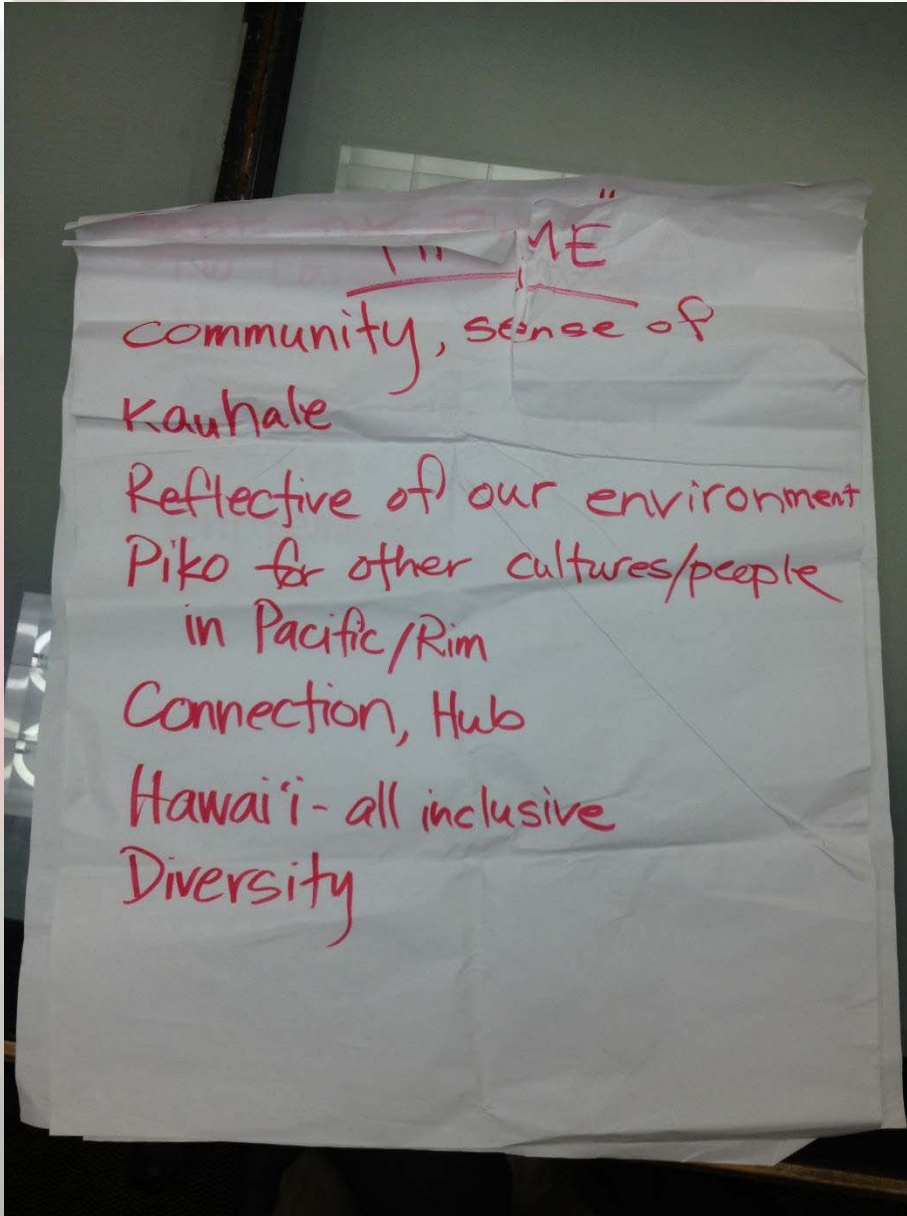 community, sense of
Kauhale
Reflective of our environment
Piko for other cultures/people
in Pacific/Rim
Connection, Hub
Hawai'i - all inclusive
Diversity